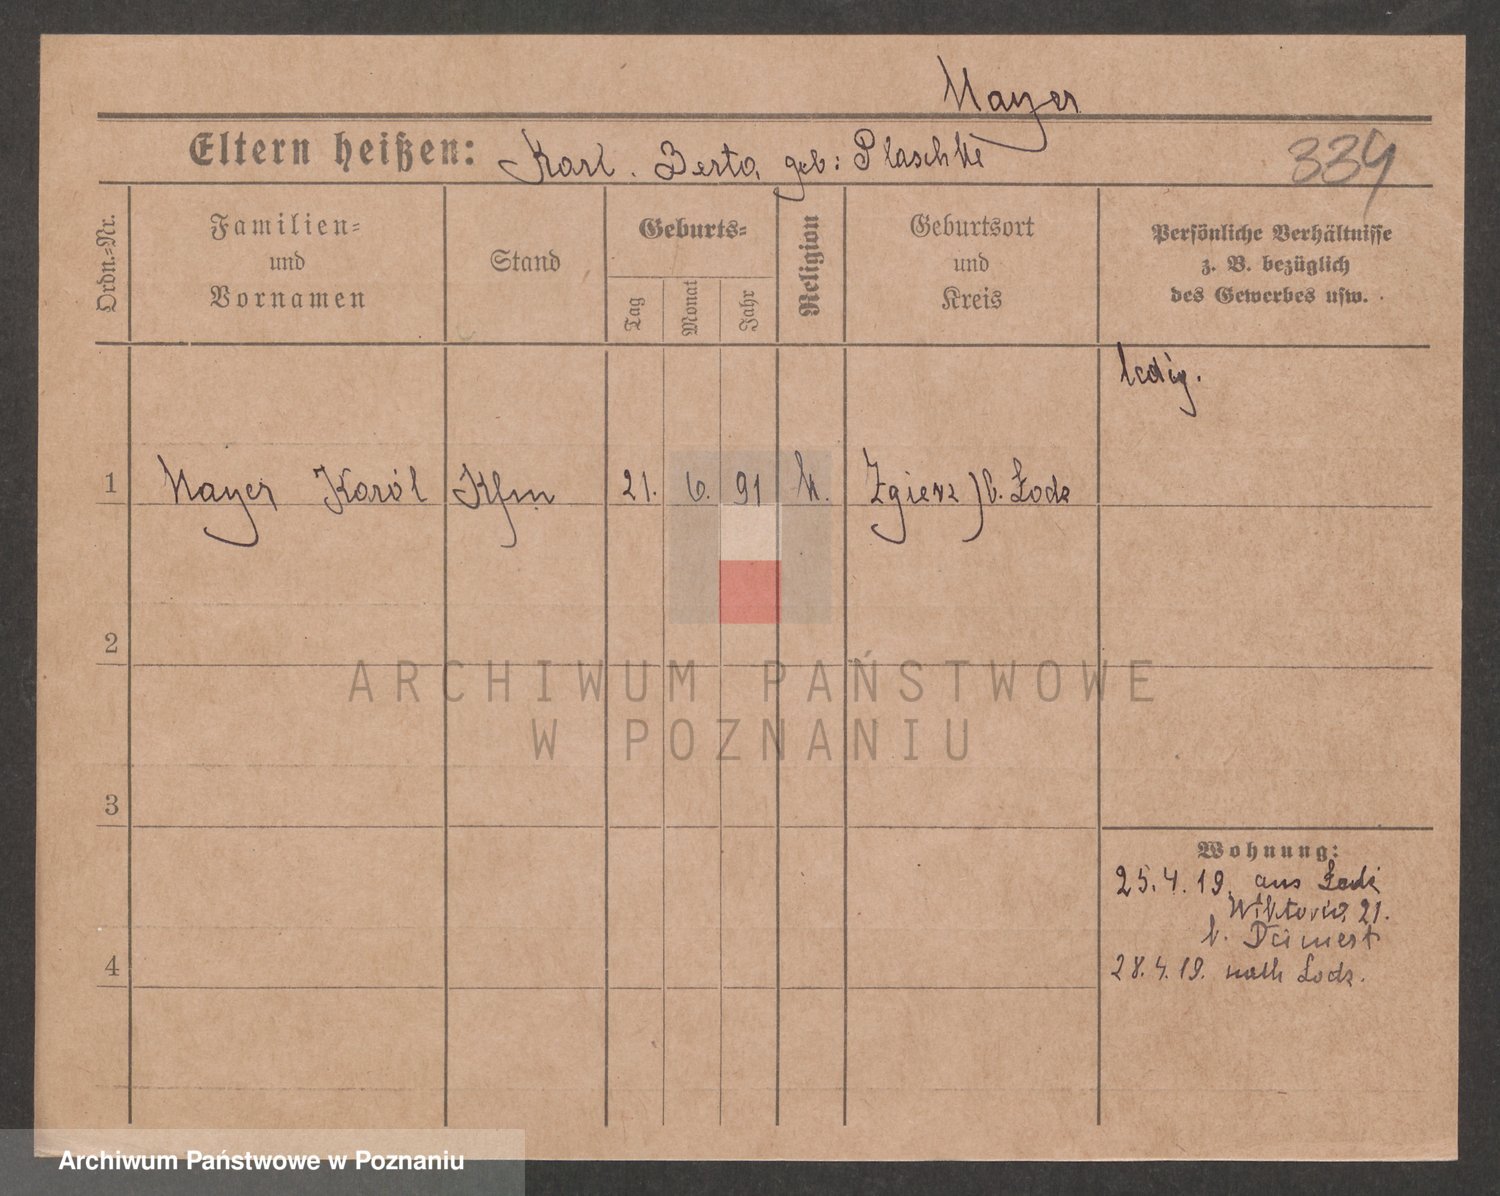 Mayer
Eltern heißen: Karl. Berta geb: Plaschke
334
Ordn.-Nr.
Familien-
und
Vornamen
Stand
Geburts-
Tag
Monat
Jahr
Religion
Geburtsort
und
Kreis
Persönliche Verhältnisse
z. B. bezüglich
des Gewerbes usw.
ledig.
1 Mayer Karól Kfm 21. 6. 91 k. Zgierz) b. Lodz
2
3
4
Wohnung:
25.4.19. aus Lodz
Wiktoria 21.
b.
28.4.19. nach Lodz.
ARCHIWUM PAŃSTWOWE
W POZNANIU
Archiwum Państwowe w Poznaniu